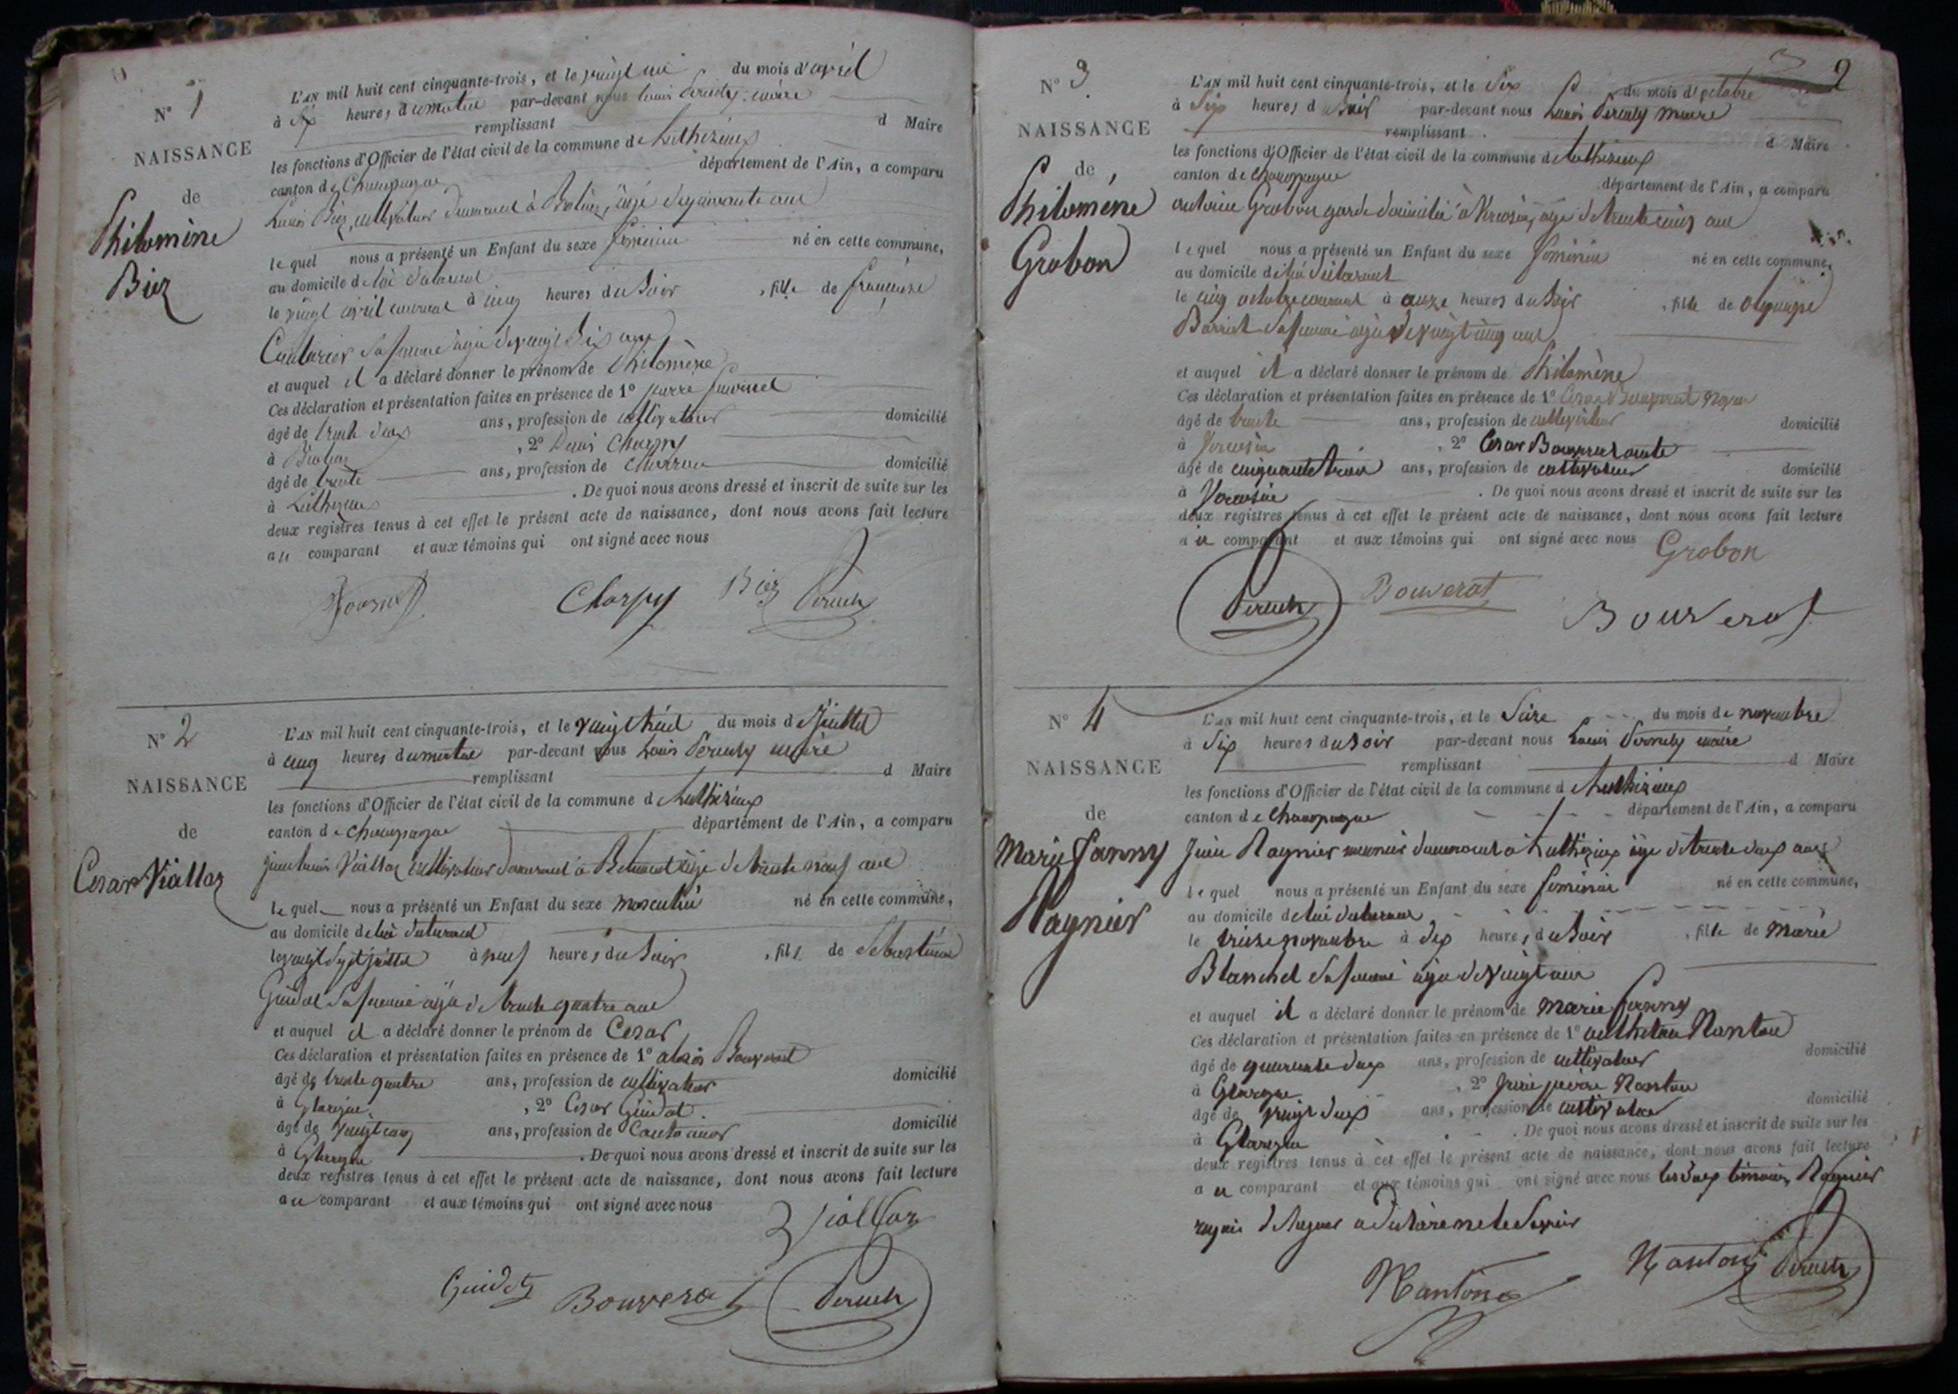 N° 1
NAISSANCE
de
Philomène
Biez
L'AN mil huit cent cinquante-trois, et le vingt un du mois d'avril
à six heures du matin par-devant nous Louis Peruely maire
remplissant d Maire
les fonctions d'Officier de l'état civil de la commune de Luthézieux
canton de Champagne département de l'Ain, a comparu
Louis Biez cultivateur demeurant à âgé de quarante ans
lequel nous a présenté un Enfant du sexe féminin né en cette commune,
au domicile de lui déclarant
le vingt avril courant à cinq heures du Soir , fille de françoise
sa femme âgée de vingt six ans
et auquel il a déclaré donner le prénom de Philomène
Ces déclaration et présentation faites en présence de 1° pierre
âgé de trente deux ans, profession de cultivateur domicilié
à , 2° Charpy
âgé de trente ans, profession de domicilié
à Luthézieux . De quoi nous avons dressé et inscrit de suite sur les
deux registres tenus à cet effet le présent acte de naissance, dont nous avons fait lecture
au comparant et aux témoins qui ont signé avec nous
Charpy Biez
N° 2
NAISSANCE
de
Cesar Viallaz
L'AN mil huit cent cinquante-trois, et le vingt huit du mois de Juillet
à cinq heures du matin par-devant nous Louis Peruely maire
remplissant d Maire
les fonctions d'Officier de l'état civil de la commune d Luthézieux
canton de champagne département de l'Ain, a comparu
jean louis Viallaz cultivateur demeurant à âgé de trente neuf ans
lequel nous a présenté un Enfant du sexe masculin né en cette commune,
au domicile de lui déclarant
le vingt sept juillet à neuf heures du Soir , fils de
Guidot sa femme âgée de trente quatre ans
et auquel il a déclaré donner le prénom de Cesar
Ces déclaration et présentation faites en présence de 1° alexis Bouverat
âgé de trente quatre ans, profession de cultivateur domicilié
à , 2° Cesar Guidot
âgé de vingt cinq ans, profession de Cantonnier domicilié
à . De quoi nous avons dressé et inscrit de suite sur les
deux registres tenus à cet effet le présent acte de naissance, dont nous avons fait lecture
au comparant et aux témoins qui ont signé avec nous
Viallaz
Guidot Bouverat
2
N° 3
NAISSANCE
de
Philomène
Grobon
L'AN mil huit cent cinquante-trois, et le Six du mois d'octobre
à Six heures du Soir par-devant nous Louis Peruely maire
remplissant d Maire
les fonctions d'Officier de l'état civil de la commune de Luthézieux
canton de champagne département de l'Ain, a comparu
antoine Grobon garde domicilié à âgé de trente cinq ans
lequel nous a présenté un Enfant du sexe féminin né en cette commune,
au domicile de lui déclarant
le cinq octobre courant à onze heures du Soir , fille de
sa femme âgée de vingt cinq ans
et auquel il a déclaré donner le prénom de Philomène
Ces déclaration et présentation faites en présence de 1° Cesar Bouverat
âgé de trente ans, profession de cultivateur domicilié
à , 2° Cesar Bouverat
âgé de cinquante trois ans, profession de cultivateur domicilié
à . De quoi nous avons dressé et inscrit de suite sur les
deux registres tenus à cet effet le présent acte de naissance, dont nous avons fait lecture
au comparant et aux témoins qui ont signé avec nous Grobon
Bouverat Bouverat
N° 4
NAISSANCE
de
Marie fanny
Raynier
L'AN mil huit cent cinquante-trois, et le Seize du mois de novembre
à Six heures du Soir par-devant nous Louis Peruely maire
remplissant d Maire
les fonctions d'Officier de l'état civil de la commune d Luthézieux
canton de Champagne département de l'Ain, a comparu
Raynier demeurant à Luthézieux âgé de trente deux ans
lequel nous a présenté un Enfant du sexe féminin né en cette commune,
au domicile de lui déclarant
le treize novembre à dix heures du Soir , fille de Marie
Blanchet sa femme âgée de vingt ans
et auquel il a déclaré donner le prénom de Marie fanny
Ces déclaration et présentation faites en présence de 1° anthelme Nanton
âgé de quarante deux ans, profession de cultivateur domicilié
à , 2° pierre Nanton
âgé de vingt deux ans, profession de cultivateur domicilié
à . De quoi nous avons dressé et inscrit de suite sur les
deux registres tenus à cet effet le présent acte de naissance, dont nous avons fait lecture
au comparant et aux témoins qui ont signé avec nous les deux témoins, Raynier
requis de signer a déclaré ne le savoir
Nanton Nanton